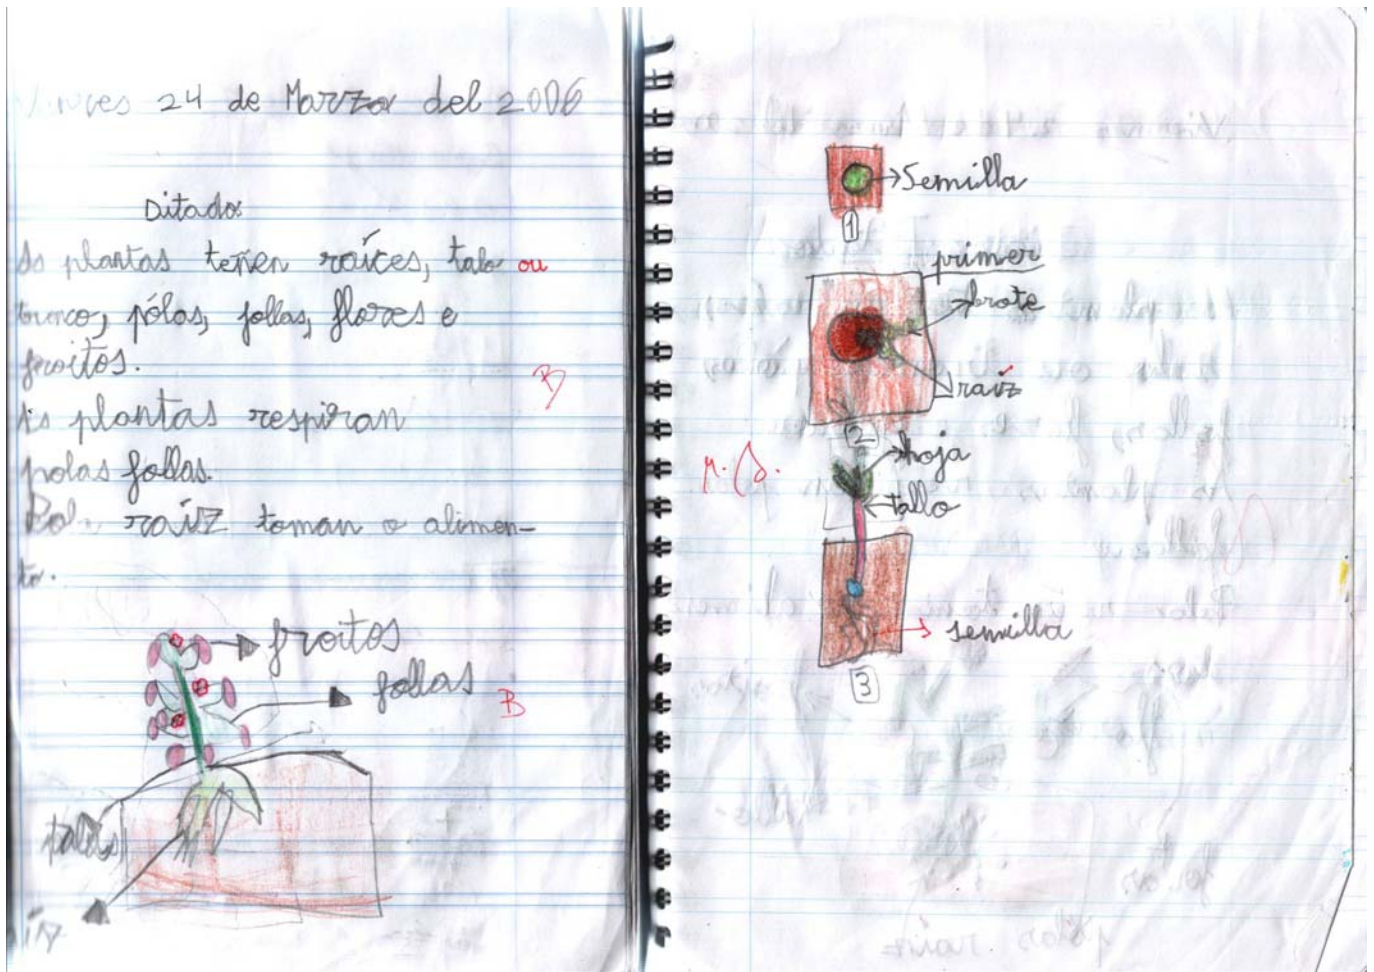 Vinres 24 de Marzo del 2006
Ditado:
As plantas teñen raíces, talo ou
tronco, pólas, follas, flores e
froitos.
B
As plantas respiran
polas follas.
Pola raíz toman o alimen-
to.
froitos
follas
B
talos
íz
Semilla
1
primer
brote
raíz
2
hoja
M.B.
tallo
semilla
3